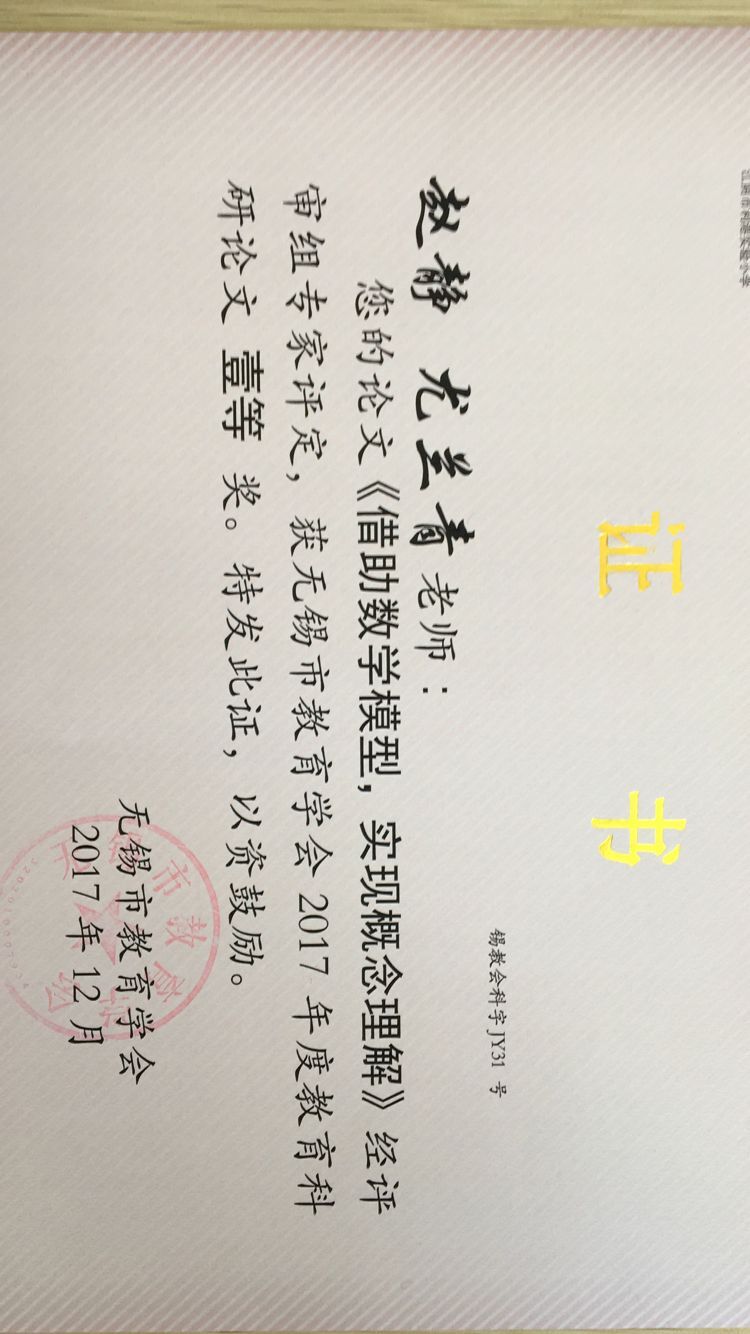 证书
锡教会科字JY31 号
赵静 尤兰青老师：
您的论文《借助数学模型，实现概念理解》经评
审组专家评定，获无锡市教育学会2017 年度教育科
研论文 壹等 奖。特发此证，以资鼓励。
无锡市教育学会
2017年12月